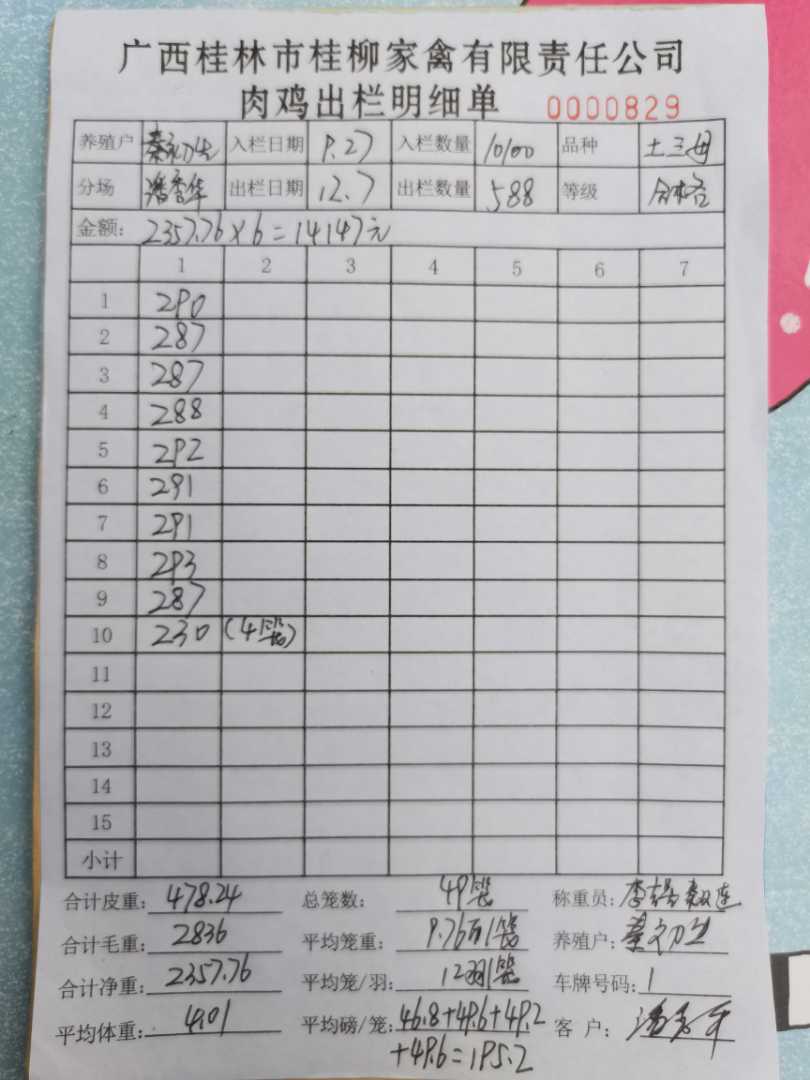 广西桂林市桂柳家禽有限责任公司
肉鸡出栏明细单 0000829
养殖户 入栏日期 9.27 入栏数量 10100 品种 土三母
分场 潘秀华 出栏日期 12.7 出栏数量 588 等级 合格
金额: 2357.76×6=14147元
1 2 3 4 5 6 7
1 290
2 287
3 287
4 288
5 292
6 291
7 291
8 293
9 287
10 230 (4笼)
11
12
13
14
15
小计
合计皮重: 478.24 总笼数: 49笼 称重员:
合计毛重: 2836 平均笼重: 9.76 养殖户:
合计净重: 2357.76 平均笼/羽: 12羽/笼 车牌号码: 1
平均体重: 4.01 平均磅/笼: 46.8+49.6+49.2 客户: 潘秀华
+49.6=195.2